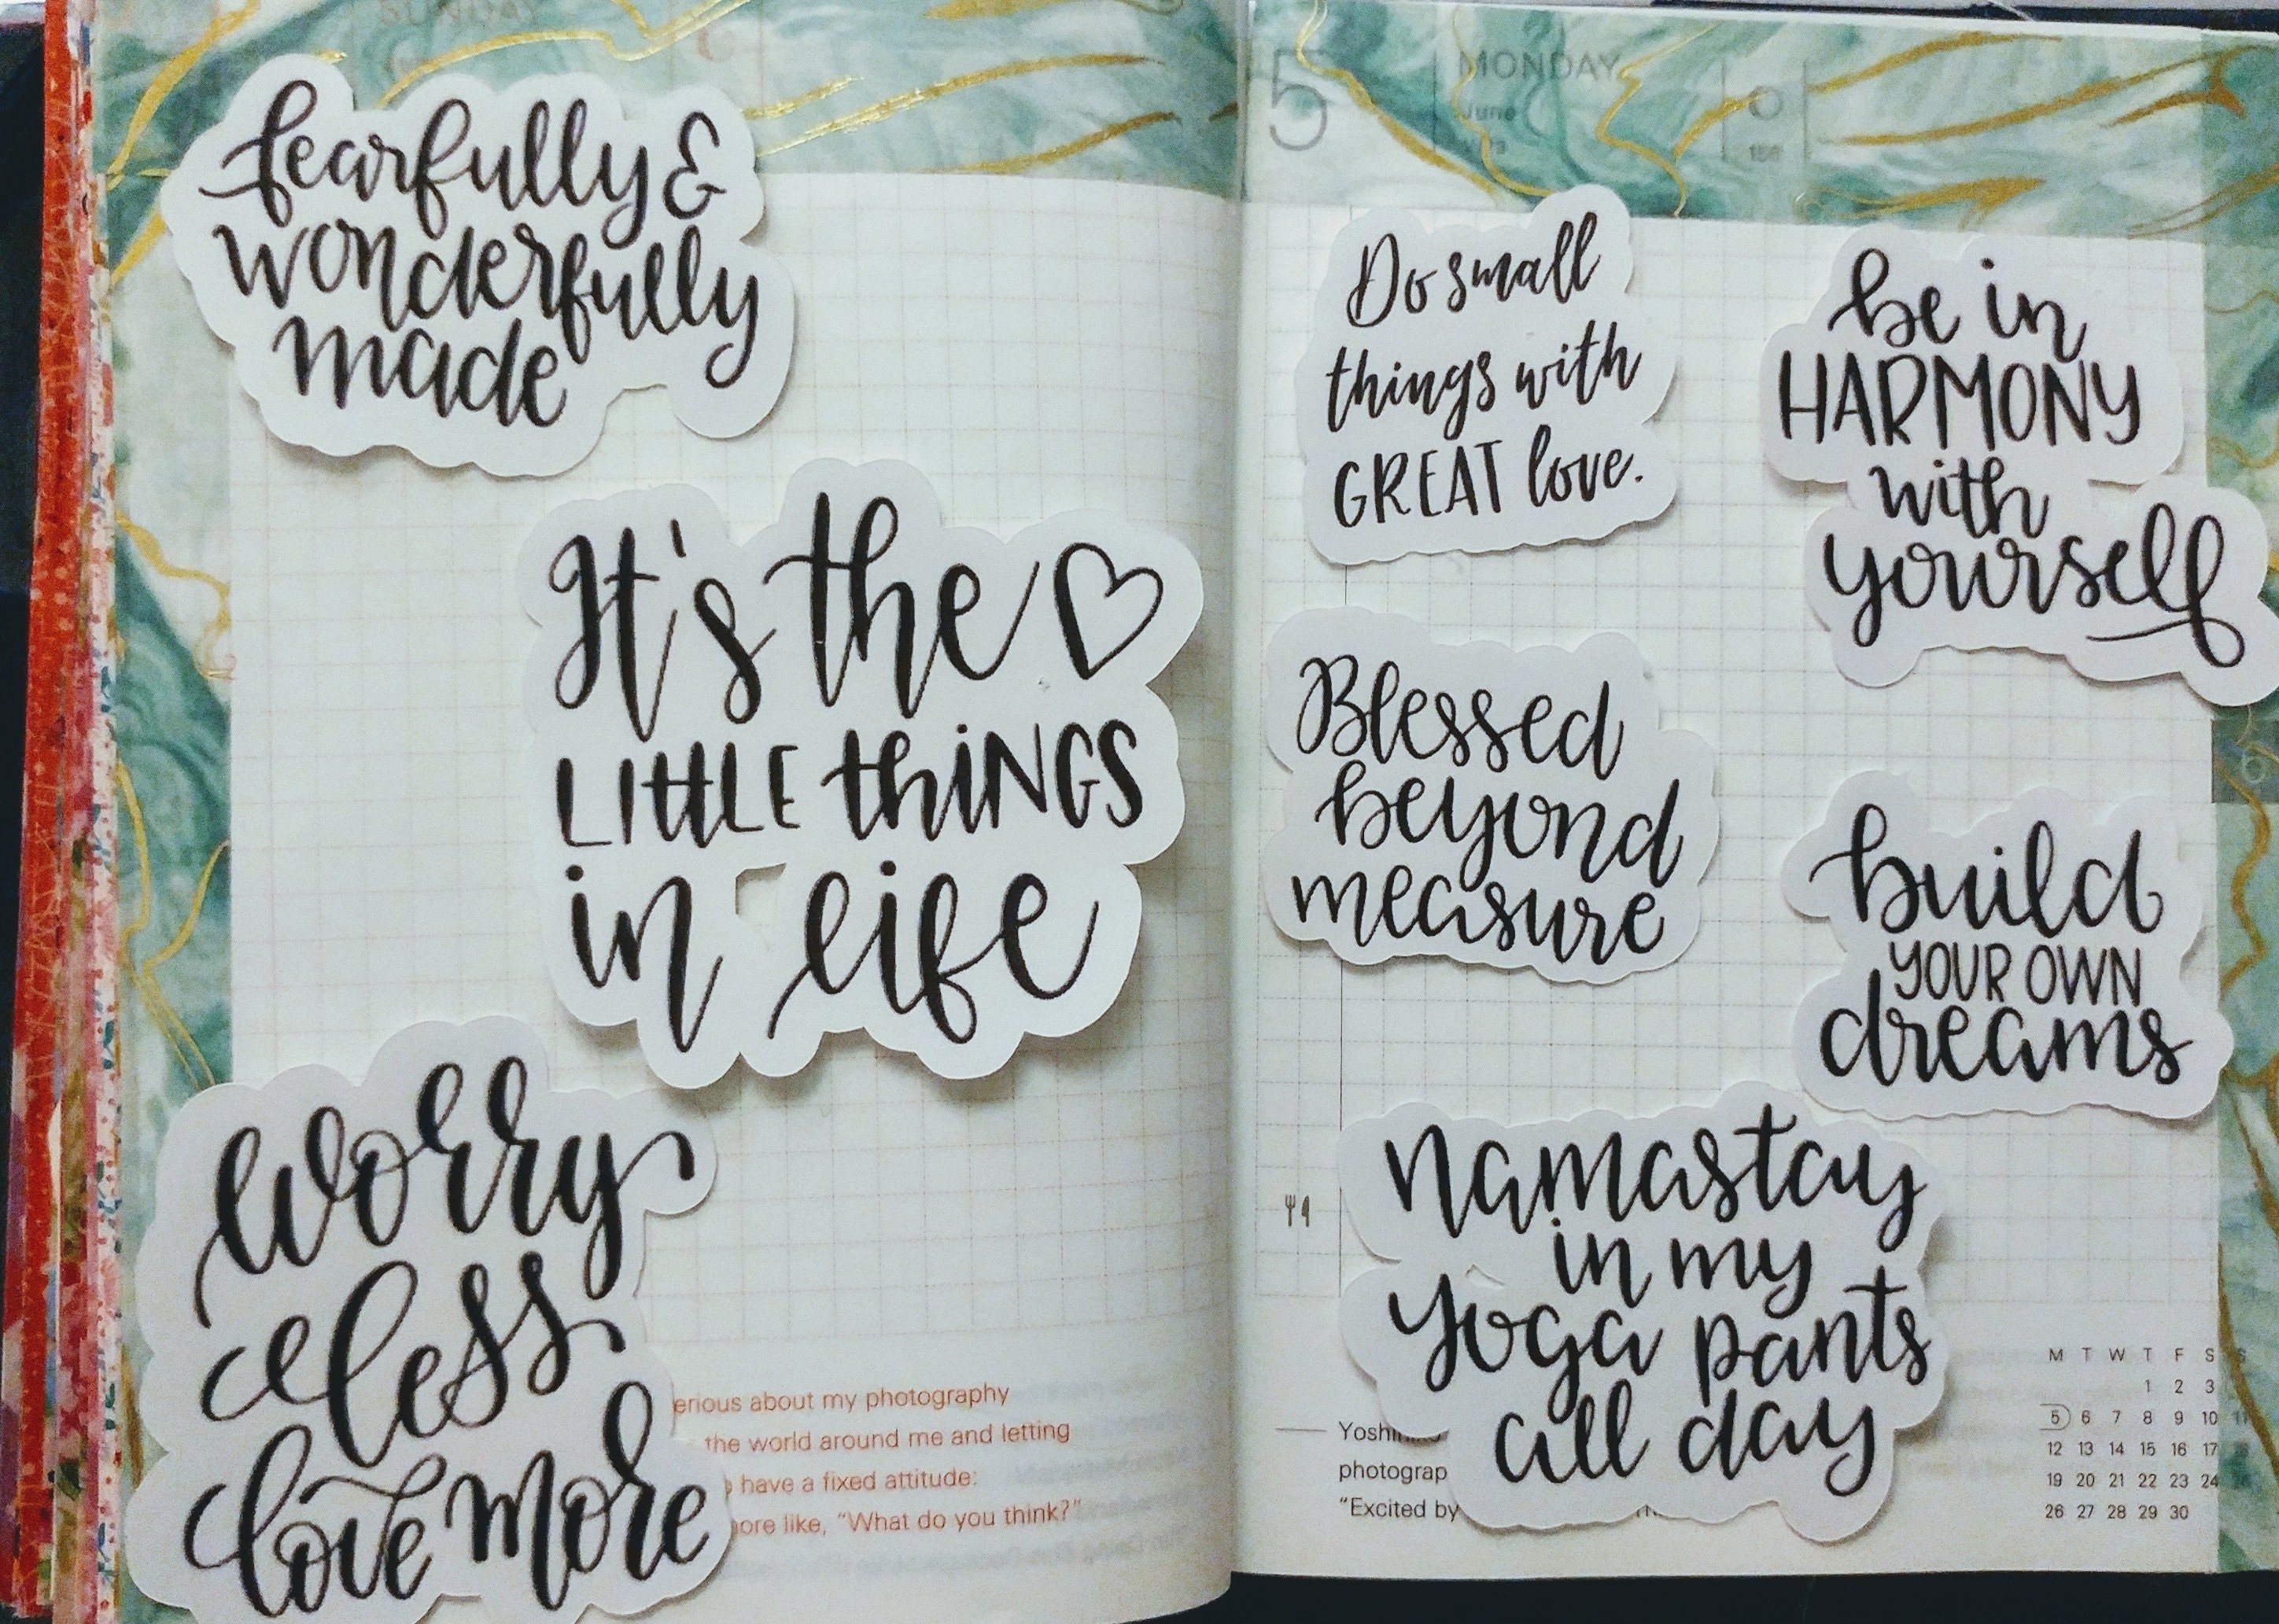 SUNDAY
fearfully &
wonderfully
made
It's the
LITTLE THINGS
in life
worry
less
love more
erious about my photography
the world around me and letting
have a fixed attitude:
ore like, "What do you think?"
5 MONDAY
June
156
Do small
things with
GREAT love.
be in
HARMONY
with
yourself
Blessed
beyond
measure
6
build
YOUR OWN
dreams
Namastay
in my
yoga pants
all day
photograp
"Excited by
M T W T F S S
1 2 3
5 6 7 8 9 10 11
12 13 14 15 16 17
19 20 21 22 23 24
26 27 28 29 30